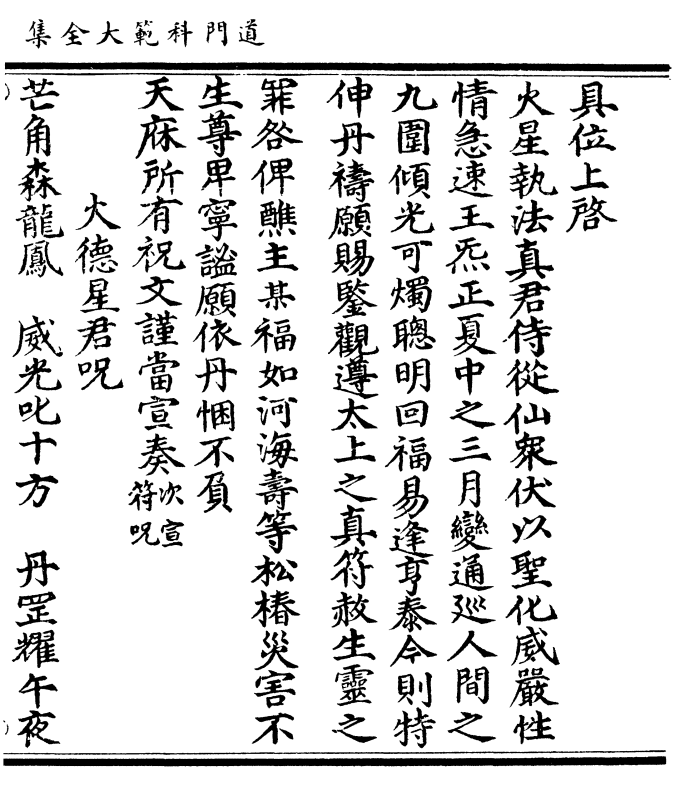 道門科範大全集
具位上啓
火星執法真君侍從仙衆伏以聖化威嚴性
情急速王炁正夏中之三月變通巡人間之
九圍傾光可燭聰明回福易逢亨泰今則特
伸丹禱願賜鍳觀遵太上之真符赦生靈之
罪咎俾醮主某福如河海壽等松椿災害不
生尊卑寧謐願依丹悃不負
天庥所有祝文謹當宣奏次宣符呪
火德星君呪
芒角森龍鳳 威光叱十方 丹罡耀午夜